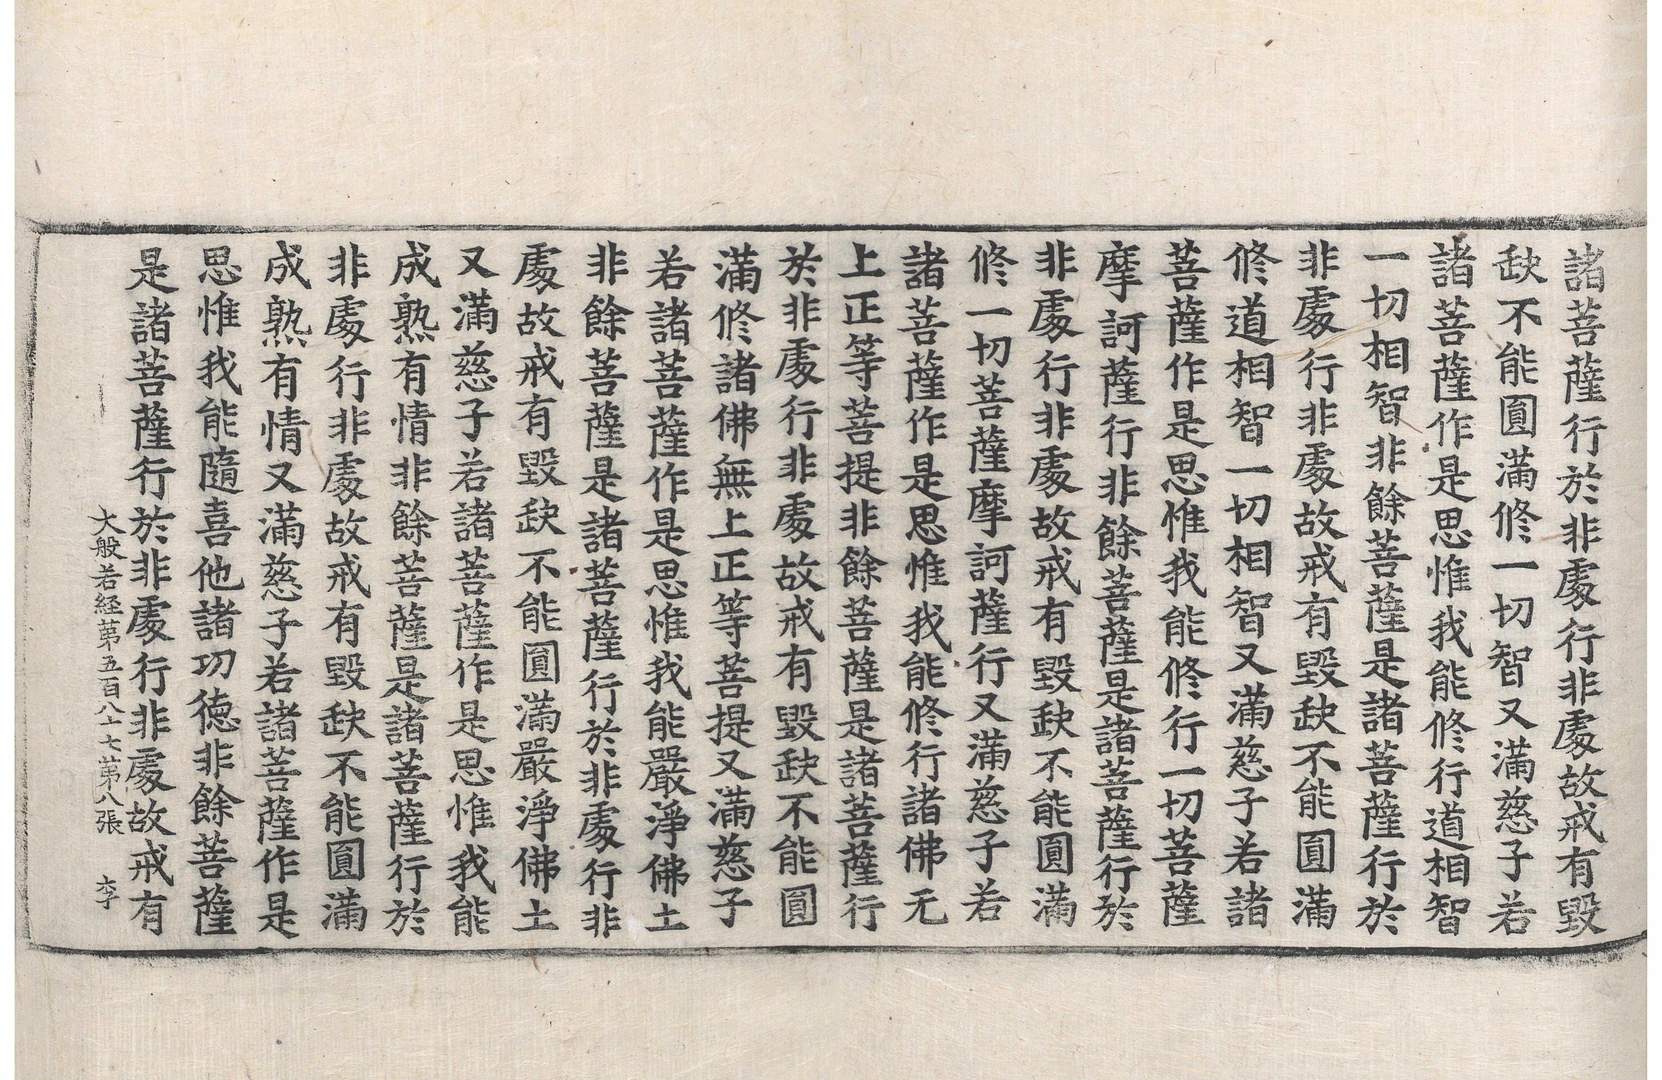 諸菩薩行於非處行非處故戒有毀
缺不能圓滿修一切智又滿慈子若
諸菩薩作是思惟我能修行道相智
一切相智非餘菩薩是諸菩薩行於
非處行非處故戒有毀缺不能圓滿
修道相智一切相智又滿慈子若諸
菩薩作是思惟我能修行一切菩薩
摩訶薩行非餘菩薩是諸菩薩行於
非處行非處故戒有毀缺不能圓滿
修一切菩薩摩訶薩行又滿慈子若
諸菩薩作是思惟我能修行諸佛无
上正等菩提非餘菩薩是諸菩薩行
於非處行非處故戒有毀缺不能圓
滿修諸佛無上正等菩提又滿慈子
若諸菩薩作是思惟我能嚴淨佛土
非餘菩薩是諸菩薩行於非處行非
處故戒有毀缺不能圓滿嚴淨佛土
又滿慈子若諸菩薩作是思惟我能
成熟有情非餘菩薩是諸菩薩行於
非處行非處故戒有毀缺不能圓滿
成熟有情又滿慈子若諸菩薩作是
思惟我能隨喜他諸功德非餘菩薩
是諸菩薩行於非處行非處故戒有
大般若経第五百八十七第八張 李